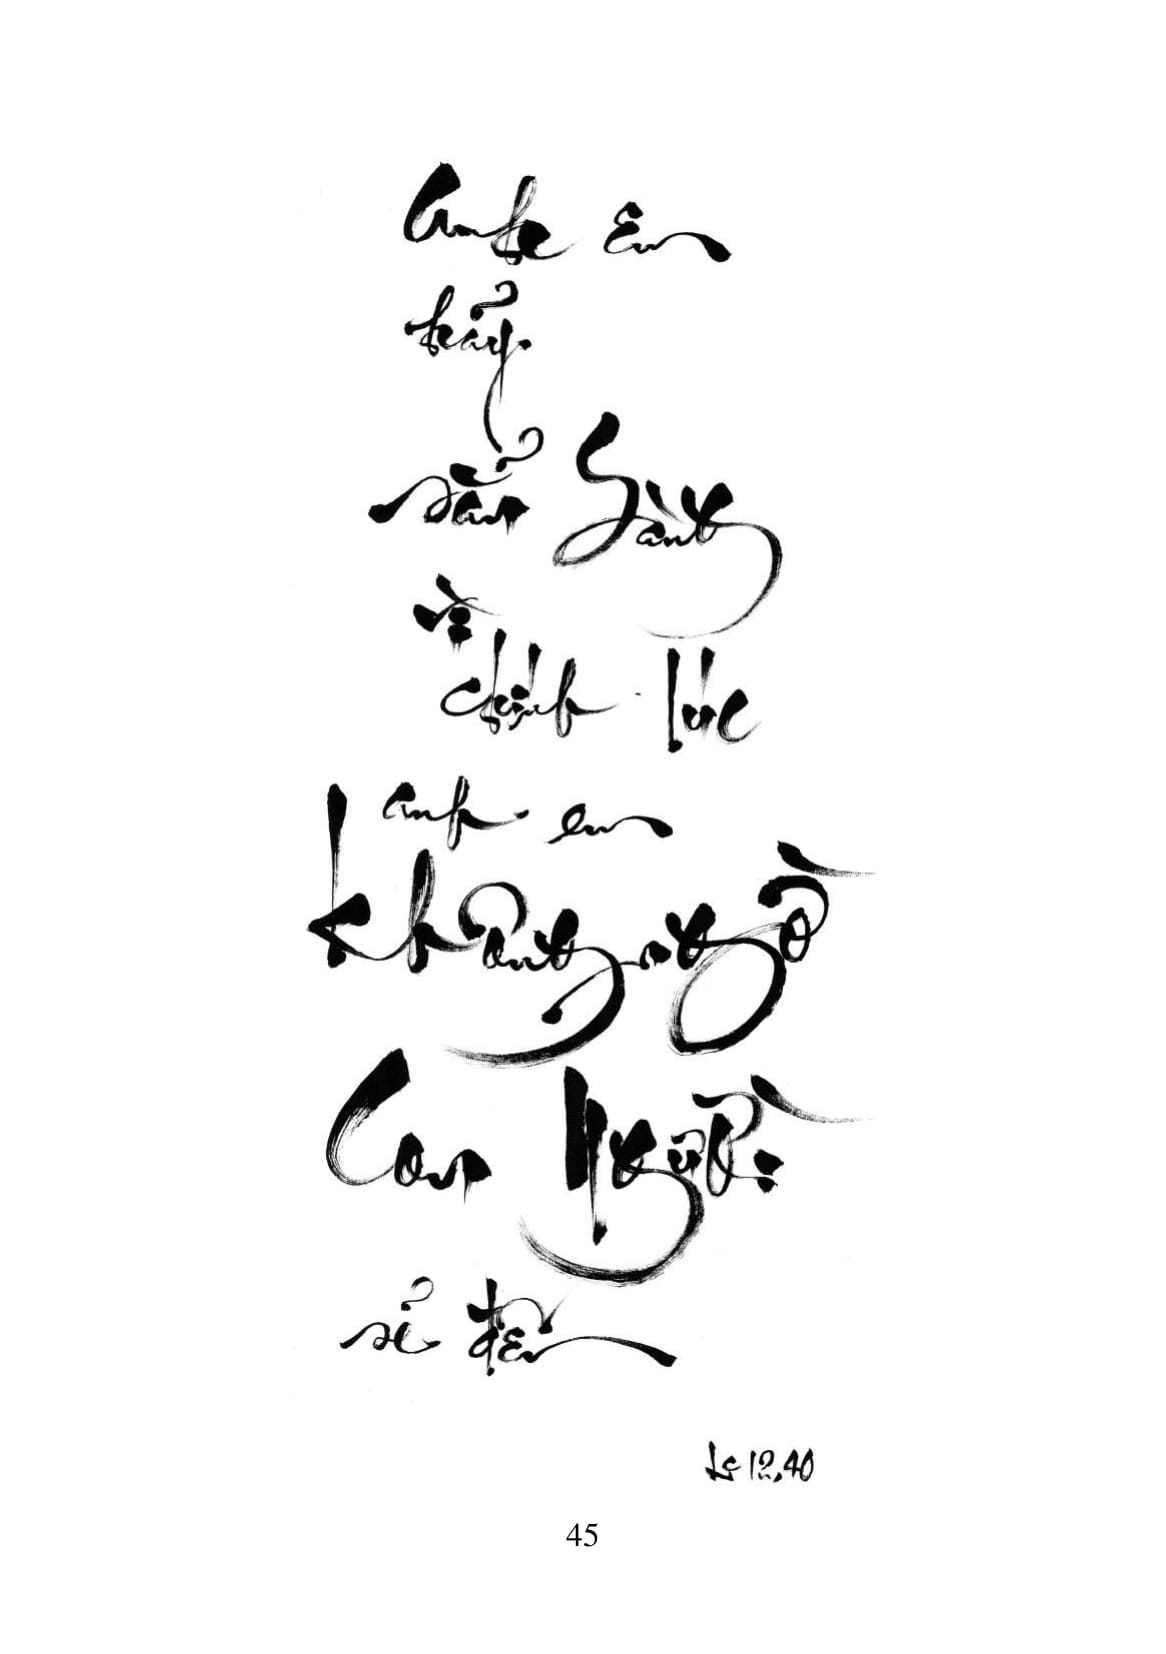 Anh em
hãy
sẵn sàng
vì
chính lúc
anh em
không ngờ
Con Người
sẽ đến
Lc 12,40
45